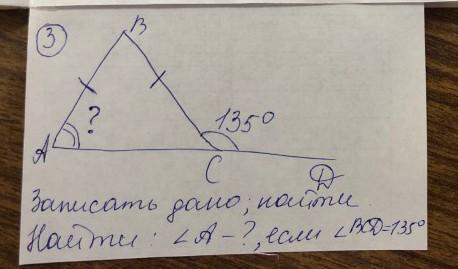 3
B
?
135°
A
C
D
Записать дано, найти
Найти: ∠A - ?, если ∠BCD=135°